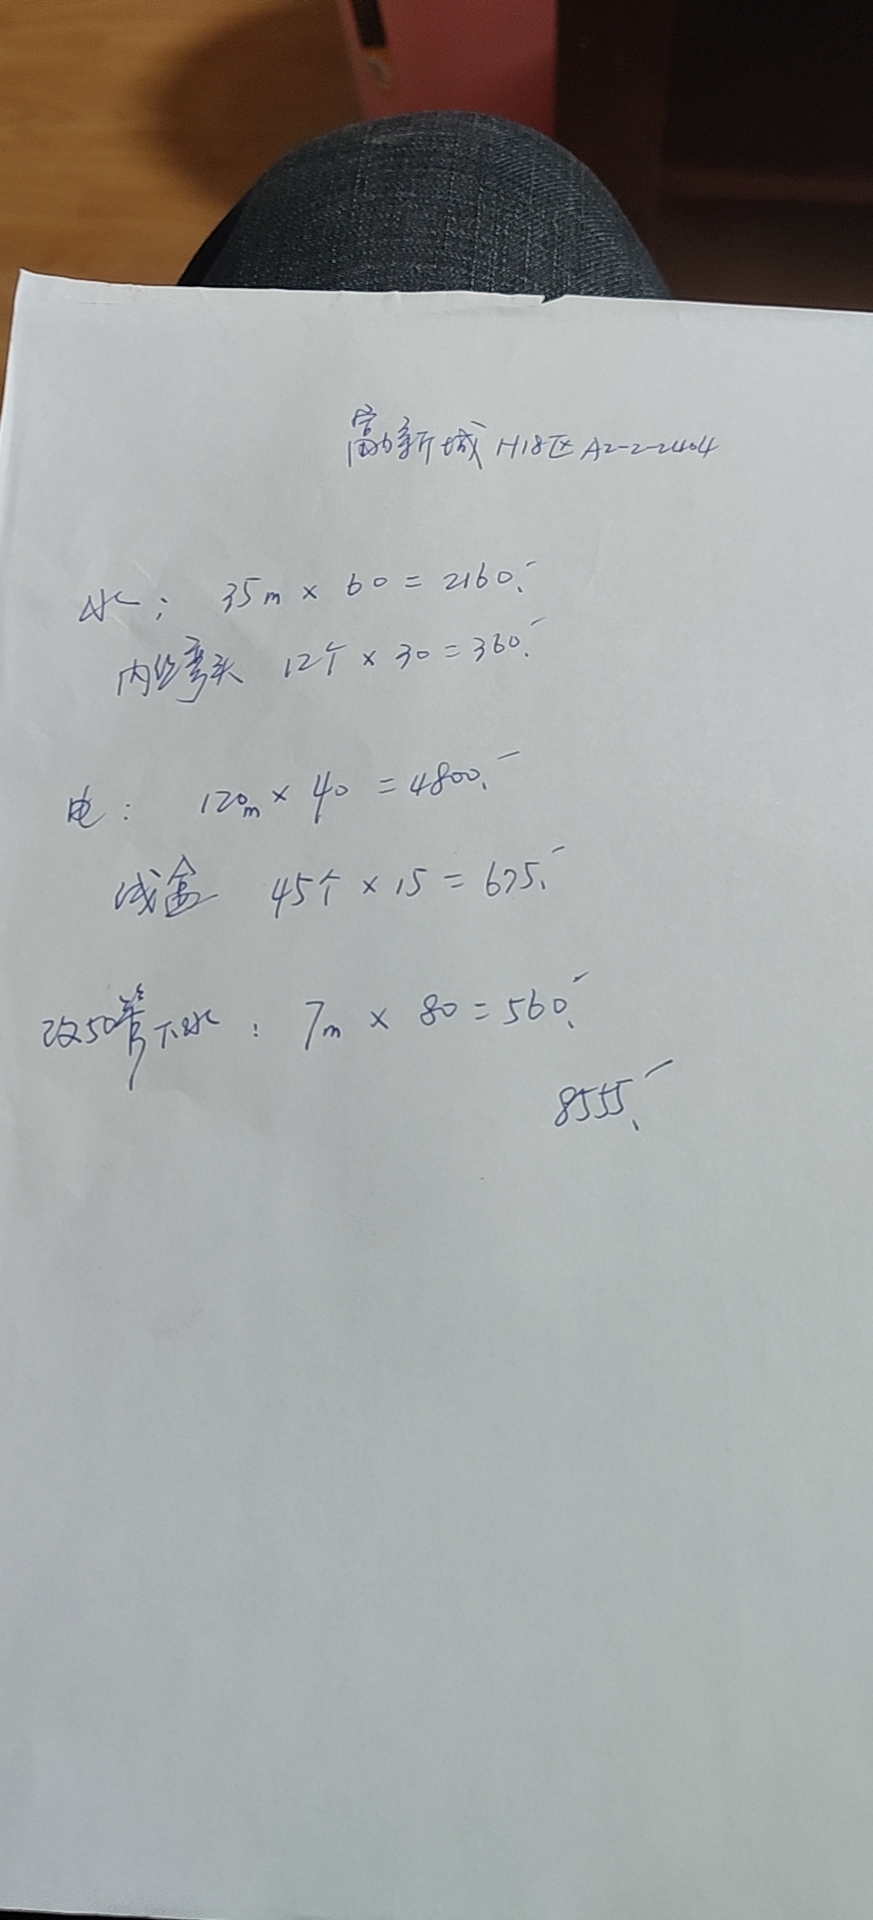 富力新城 H18区 A2-2-2404
水: 35m × 60 = 2160.-
内丝弯头 12个 × 30 = 360.-
电: 120m × 40 = 4800.-
线盒 45个 × 15 = 675.-
改50管下水: 7m × 80 = 560.-
8555.-